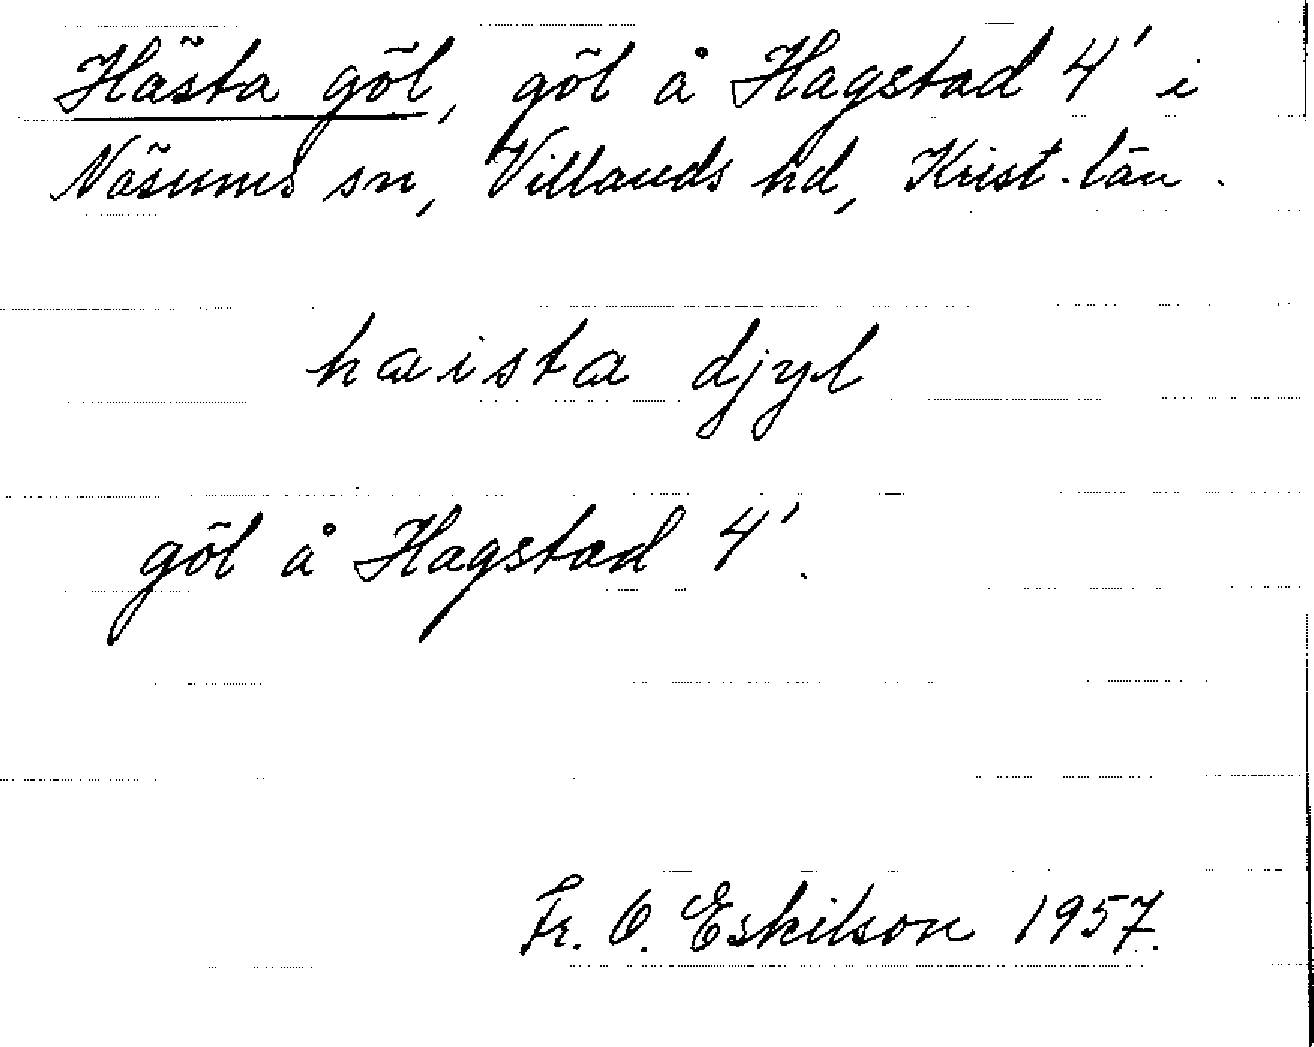 Hästa göl, göl å Hagstad 4' i
Näsums sn, Villands hd, Krist. län.
hæista djyl
göl å Hagstad 4'.
Fr. O. Eskilson 1957.